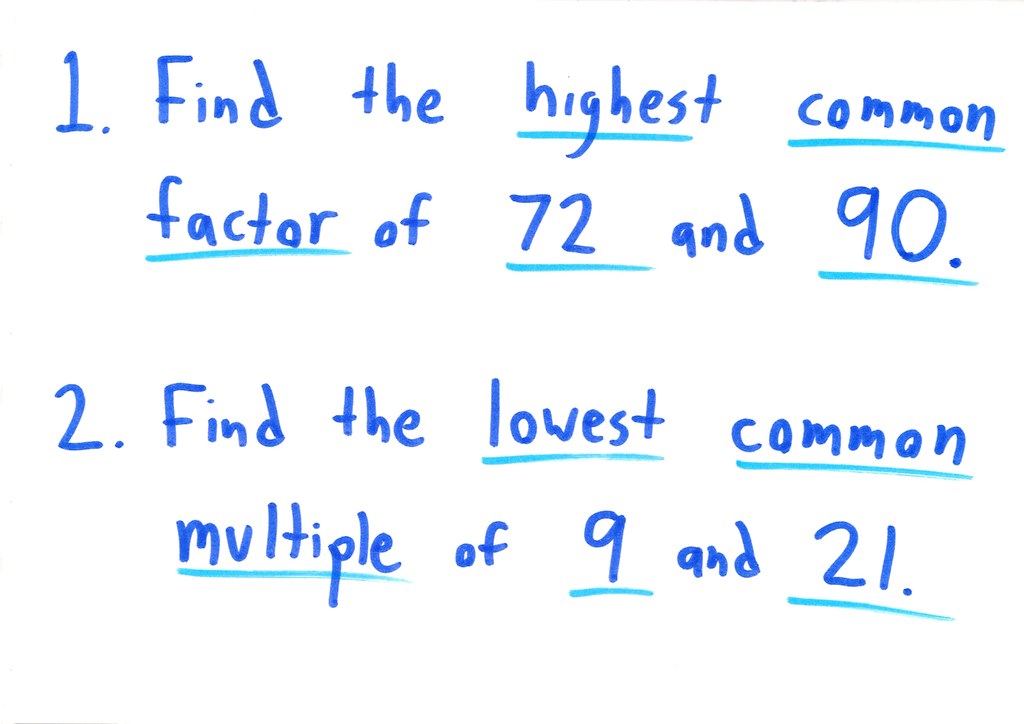 1. Find the highest common
factor of 72 and 90.
2. Find the lowest common
multiple of 9 and 21.